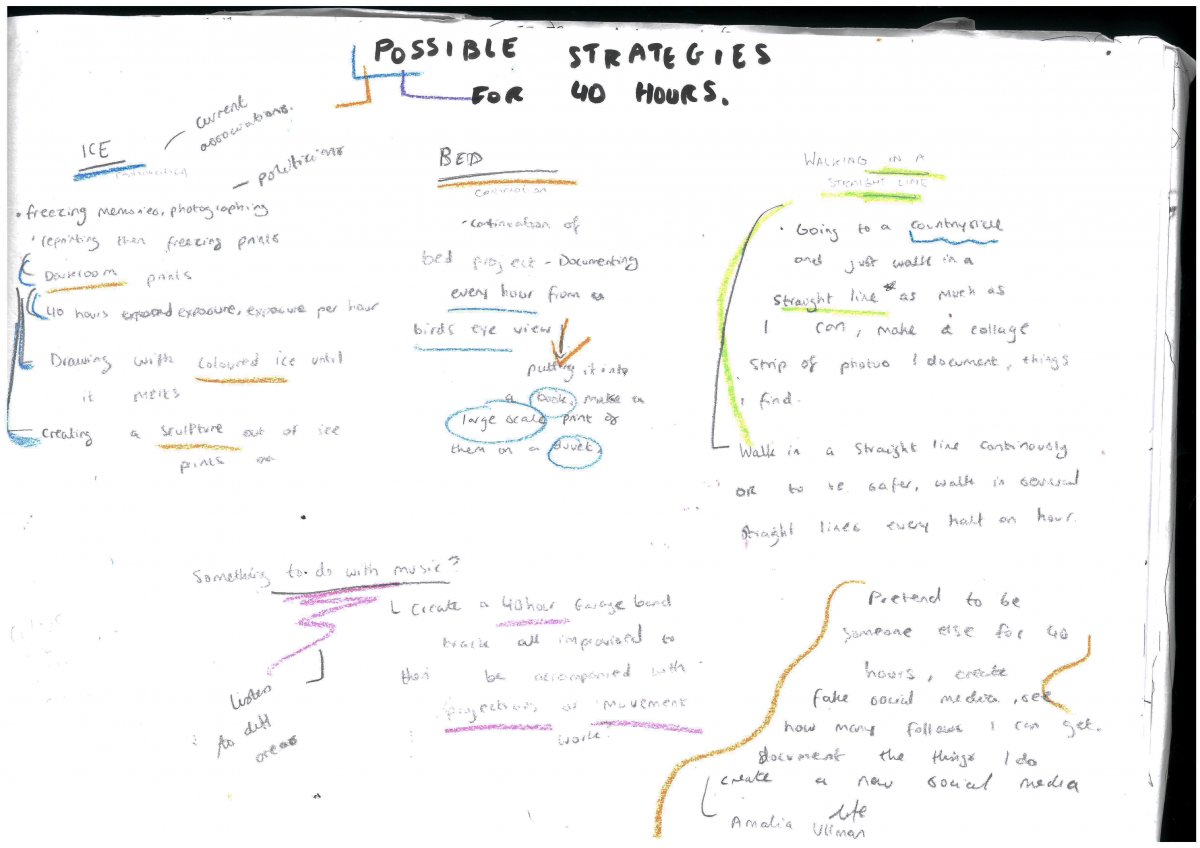 POSSIBLE STRATEGIES
FOR 40 HOURS.
ICE
current
associations.
politicians
• freezing memories, photographing
• reprinting then freezing prints
Darkroom prints
40 hours exposure, exposure per hour
Drawing with coloured ice until
it melts
creating a sculpture out of ice
prints on
BED
continuation
• continuation of
bed project - Documenting
every hour from a
birds eye view
putting it into
a book, make a
large scale print of
them on a duvet
WALKING IN A
STRAIGHT LINE
• Going to a countryside
and just walk in a
straight line * as much as
I can, make a collage
strip of photos I document, things
I find.
Walk in a straight line continously
OR to be safer, walk in several
straight lines every half an hour.
Something to do with music?
Create a 40 hour Garage band
track all improvised to
then be accompanied with
projections or movement
work.
listen
to diff
areas
Pretend to be
someone else for 40
hours, create
fake social media, see
how many follows I can get.
document the things I do
create a new social media
life
Amalia Ullman